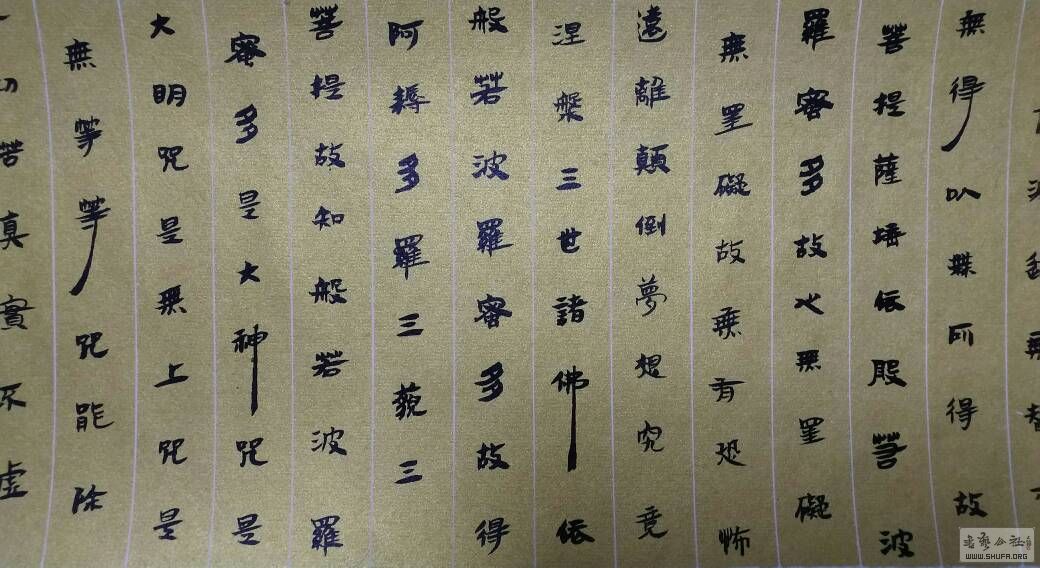 無得以無所得故
菩提薩埵依般若波
羅蜜多故心無罣礙
無罣礙故無有恐怖
遠離顛倒夢想究竟
涅槃三世諸佛依
般若波羅蜜多故得
阿耨多羅三藐三
菩提故知般若波羅
蜜多是大神咒是
大明咒是無上咒是
無等等咒能除
切苦真實不虛
書藝公社
WWW.SHUFA.ORG